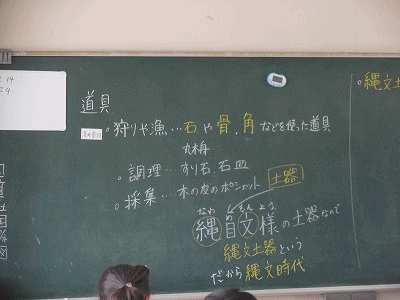 道具
。狩りや漁…石や骨、角などを使った道具
丸木舟
。調理…すり石、石皿
。採集…木の皮のポシェット
土器
なわ め もん よう
縄目文様の土器なので
縄文土器という
だから縄文時代
。縄文土